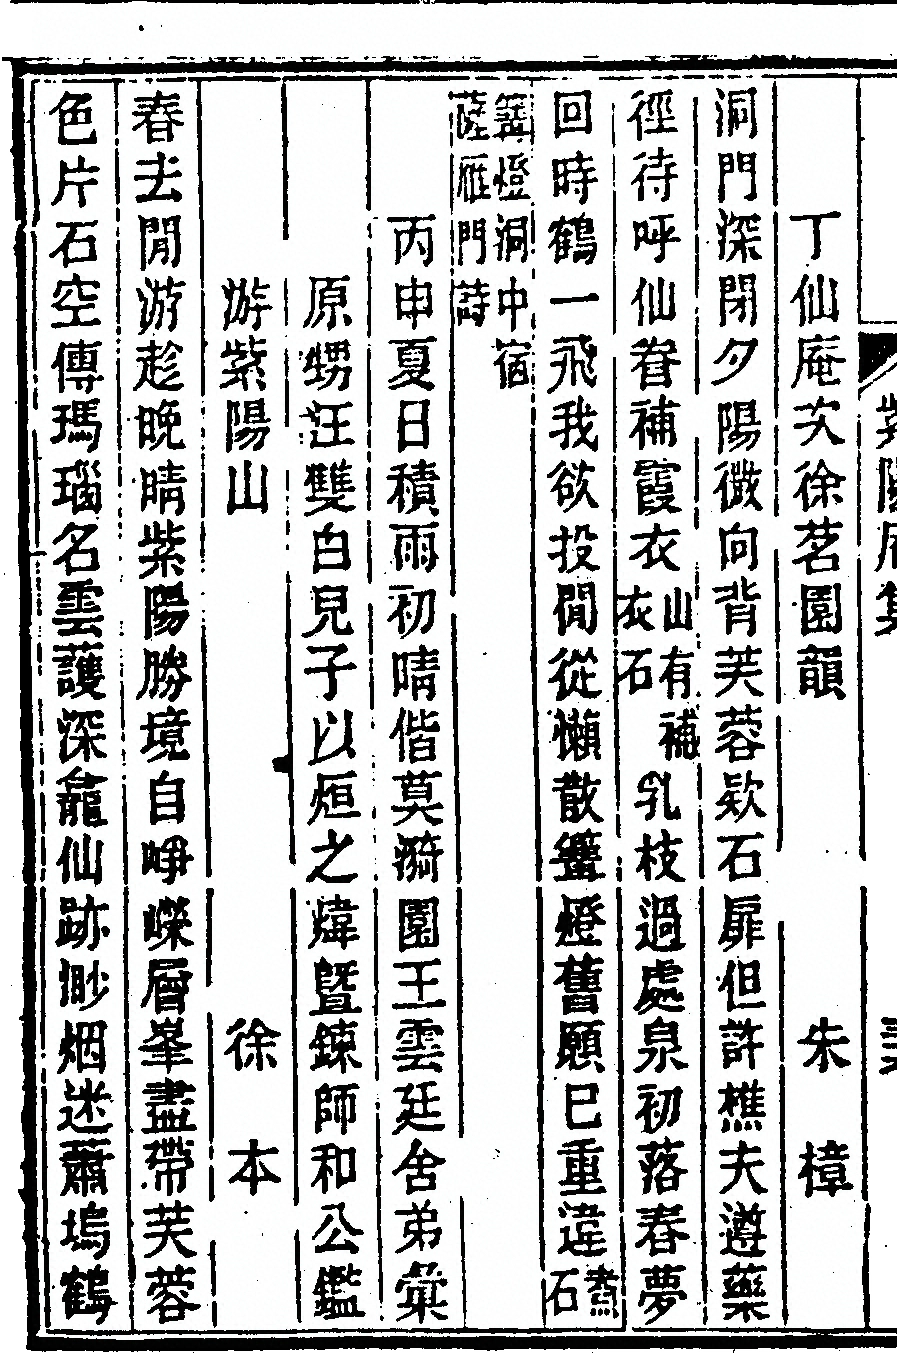 紫陽庵集
丁仙庵次徐茗園韻 朱 樟
洞門深閉夕陽微向背芙蓉欵石扉但許樵夫遵藥
徑待呼仙眷補霞衣山有補衣石乳枝過處泉初落春夢
回時鶴一飛我欲投閒從懶散篝燈舊願已重違煮石
篝燈洞中宿薩雁門詩
丙申夏日積雨初晴偕莫漪園王雲廷舍弟彙
原甥汪雙白兒子以烜之煒曁鍊師和公鑑
游紫陽山 徐 本
春去閒游趁晚晴紫陽勝境自崢嶸層峯盡帶芙蓉
色片石空傳瑪瑙名雲護深龕仙跡渺烟迷蕭塢鶴